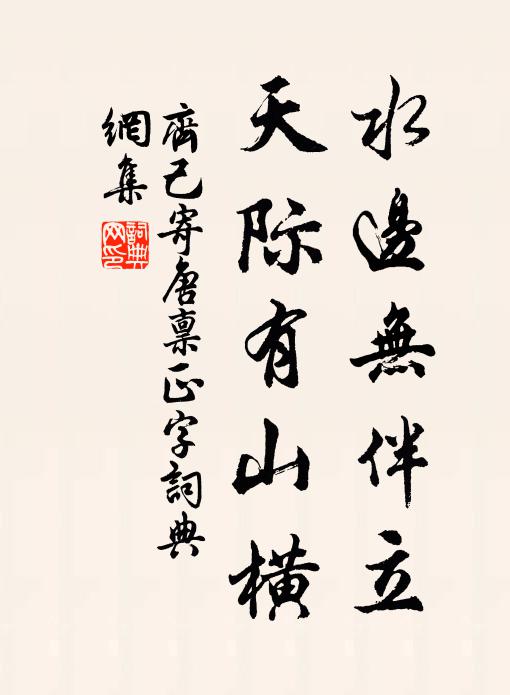 水邊無伴立
天际有山橫
齊己寄唐稟正字詞典
網集
詞典
网印